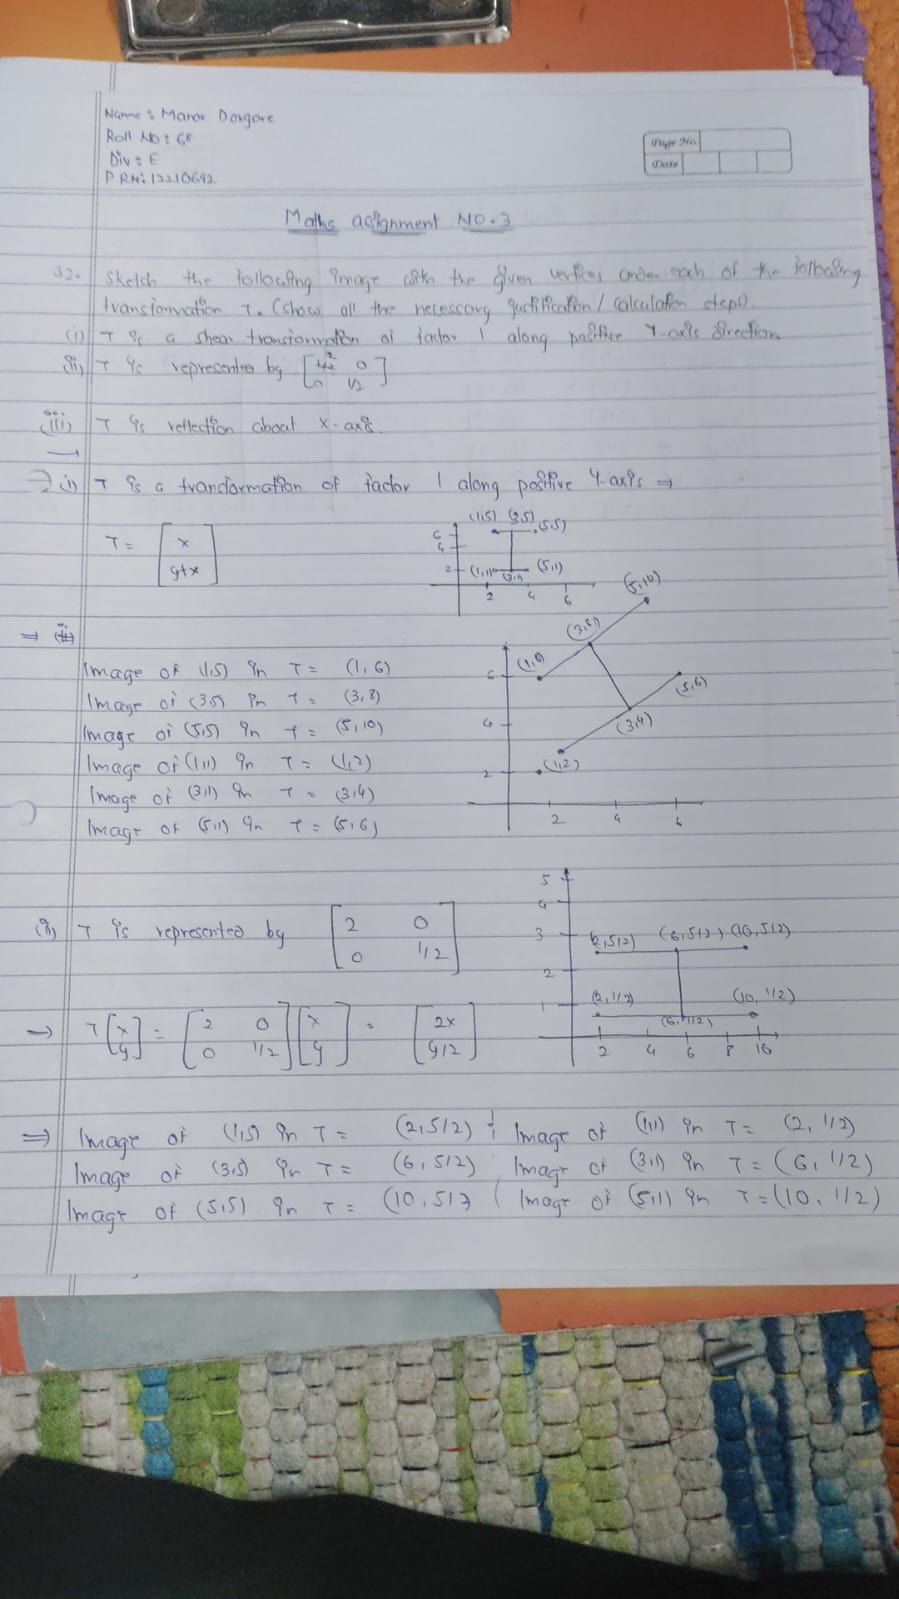 Name: Manav Dongore
Roll No: 68
Div: E
PRN: 12210692
Page No.
Date
Maths assignment NO.3
32. Sketch the following image with the given vertices under each of the following
transformation T. (show all the necessary justification / calculation steps)
(i) T is a shear transformation of factor 1 along positive Y-axis direction.
(ii) T is represented by [ 0 1/2 ]
(iii) T is reflection about X-axis.
→ i) T is a transformation of factor 1 along positive Y-axis ⇒
T = [ x y+x ]
(1,5) (3,5) (5,5)
6
4
2 (1,1) (3,1) (5,1)
2 4 6
⇒
Image of (1,5) in T = (1,6)
Image of (3,5) in T = (3,8)
Image of (5,5) in T = (5,10)
Image of (1,1) in T = (1,2)
Image of (3,1) in T = (3,4)
Image of (5,1) in T = (5,6)
(5,10)
(3,8)
(1,6)
6 (5,6)
4 (3,4)
2 (1,2)
2 4 6
(ii) T is represented by [ 2 0 0 1/2 ]
→ T [ x y ] = [ 2 0 0 1/2 ] [ x y ] = [ 2x y/2 ]
5
4
3 (2,5/2) (6,5/2) (10,5/2)
2
1 (2,1/2) (6,1/2) (10,1/2)
2 4 6 8 10
⇒ Image of (1,5) in T = (2,5/2) ; Image of (1,1) in T = (2,1/2)
Image of (3,5) in T = (6,5/2) Image of (3,1) in T = (6,1/2)
Image of (5,5) in T = (10,5/2 Image of (5,1) in T = (10,1/2)